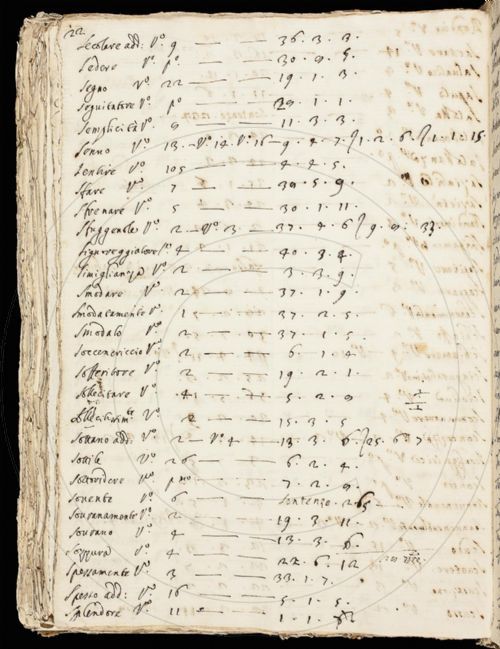 22.
Secolare add: Vº. 9 — — 36. 3. 3.
Sedere Vº. pº — — 30. 9. 5.
Segno Vº. 22 — — 19. 1. 3.
Seguitatore Vº. pº — — 29. 1. 1.
Semplicità Vº. 9 — 11. 3. 3.
Senno Vº. 13. — Vº. 14. Vº. 16 — 9. 4. 7. / 1. 2. 6. / 1. 1. 15.
Sentire Vº. 105 — — 4. 4. 5.
Sfare Vº. 7 — — 30. 5. 9.
Sfrenare Vº. 5 — — 30. 1. 11.
Sfuggente Vº. 2 — Vº. 3 — 37. 4. 6 / 9. 9. 33.
Signoreggiatore Vº. 4 — — 40. 3. 4.
Simiglianza Vº. 2 — — 3. 3. 9.
Smodare Vº. 2 — — 37. 1. 9.
Smodatamente Vº. 1 — — 37. 2. 5.
Smodato Vº. 2 — — 37. 1. 5.
Vº. 2 — — 6. 1. 4.
Sofferitore Vº. 2 — — 19. 2. 1.
Sollecitare Vº. 4 — — 5. 2. 9
Vº. 2 — — 15. 3. 5.
Sottano add: Vº. 2 — Vº. 4 — 13. 3. 6. / 25. 6. 7
Sottile Vº. 26 — — 6. 2. 4.
Sottridere Vº. pmo — — 7. 2. 9.
Sovente Vº. 6 — — Sentenze. 265
Sovranamente Vº. 2 — — 19. 3. 11.
Sovrano Vº. 4 — — 13. 3. 6.
Sozzura Vº. 4 — — 22. 6. 12
Spessamente Vº. 3 — — 33. 1. 7.
Spesso add: Vº. 16 — — 5. 1. 5.
Splendore Vº. 11 — — 1. 1.